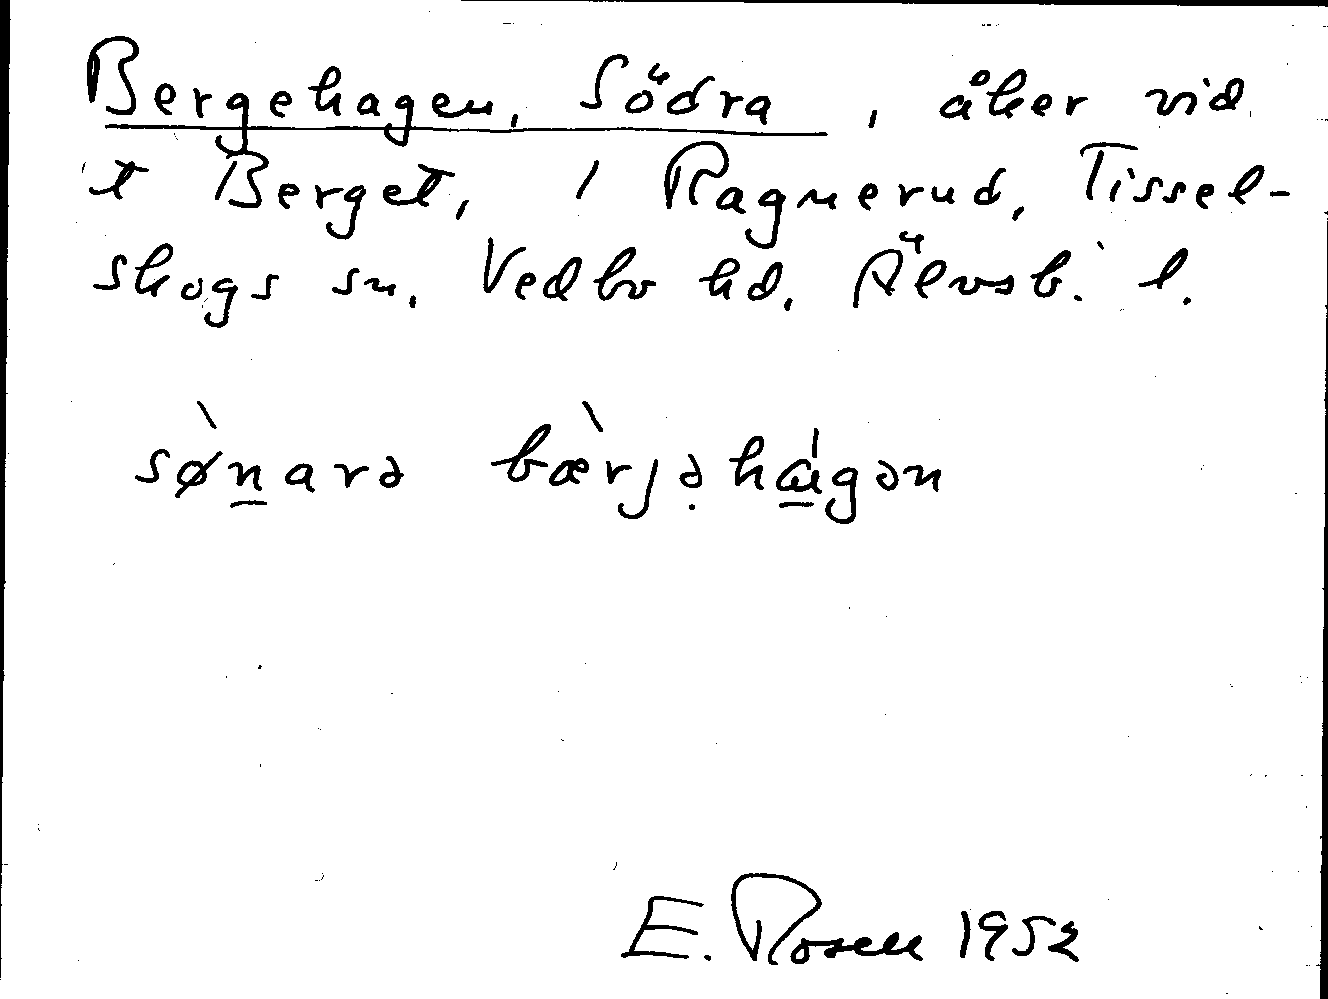 Bergehagen, Södra, åker vid
t Berget, 1 Ragnerud, Tissel-
skogs sn, Vedbo hd, Älvsb. l.
sø̀n̲arə bæ̀rjə̣ha̲̍gən
E. Rosell 1952